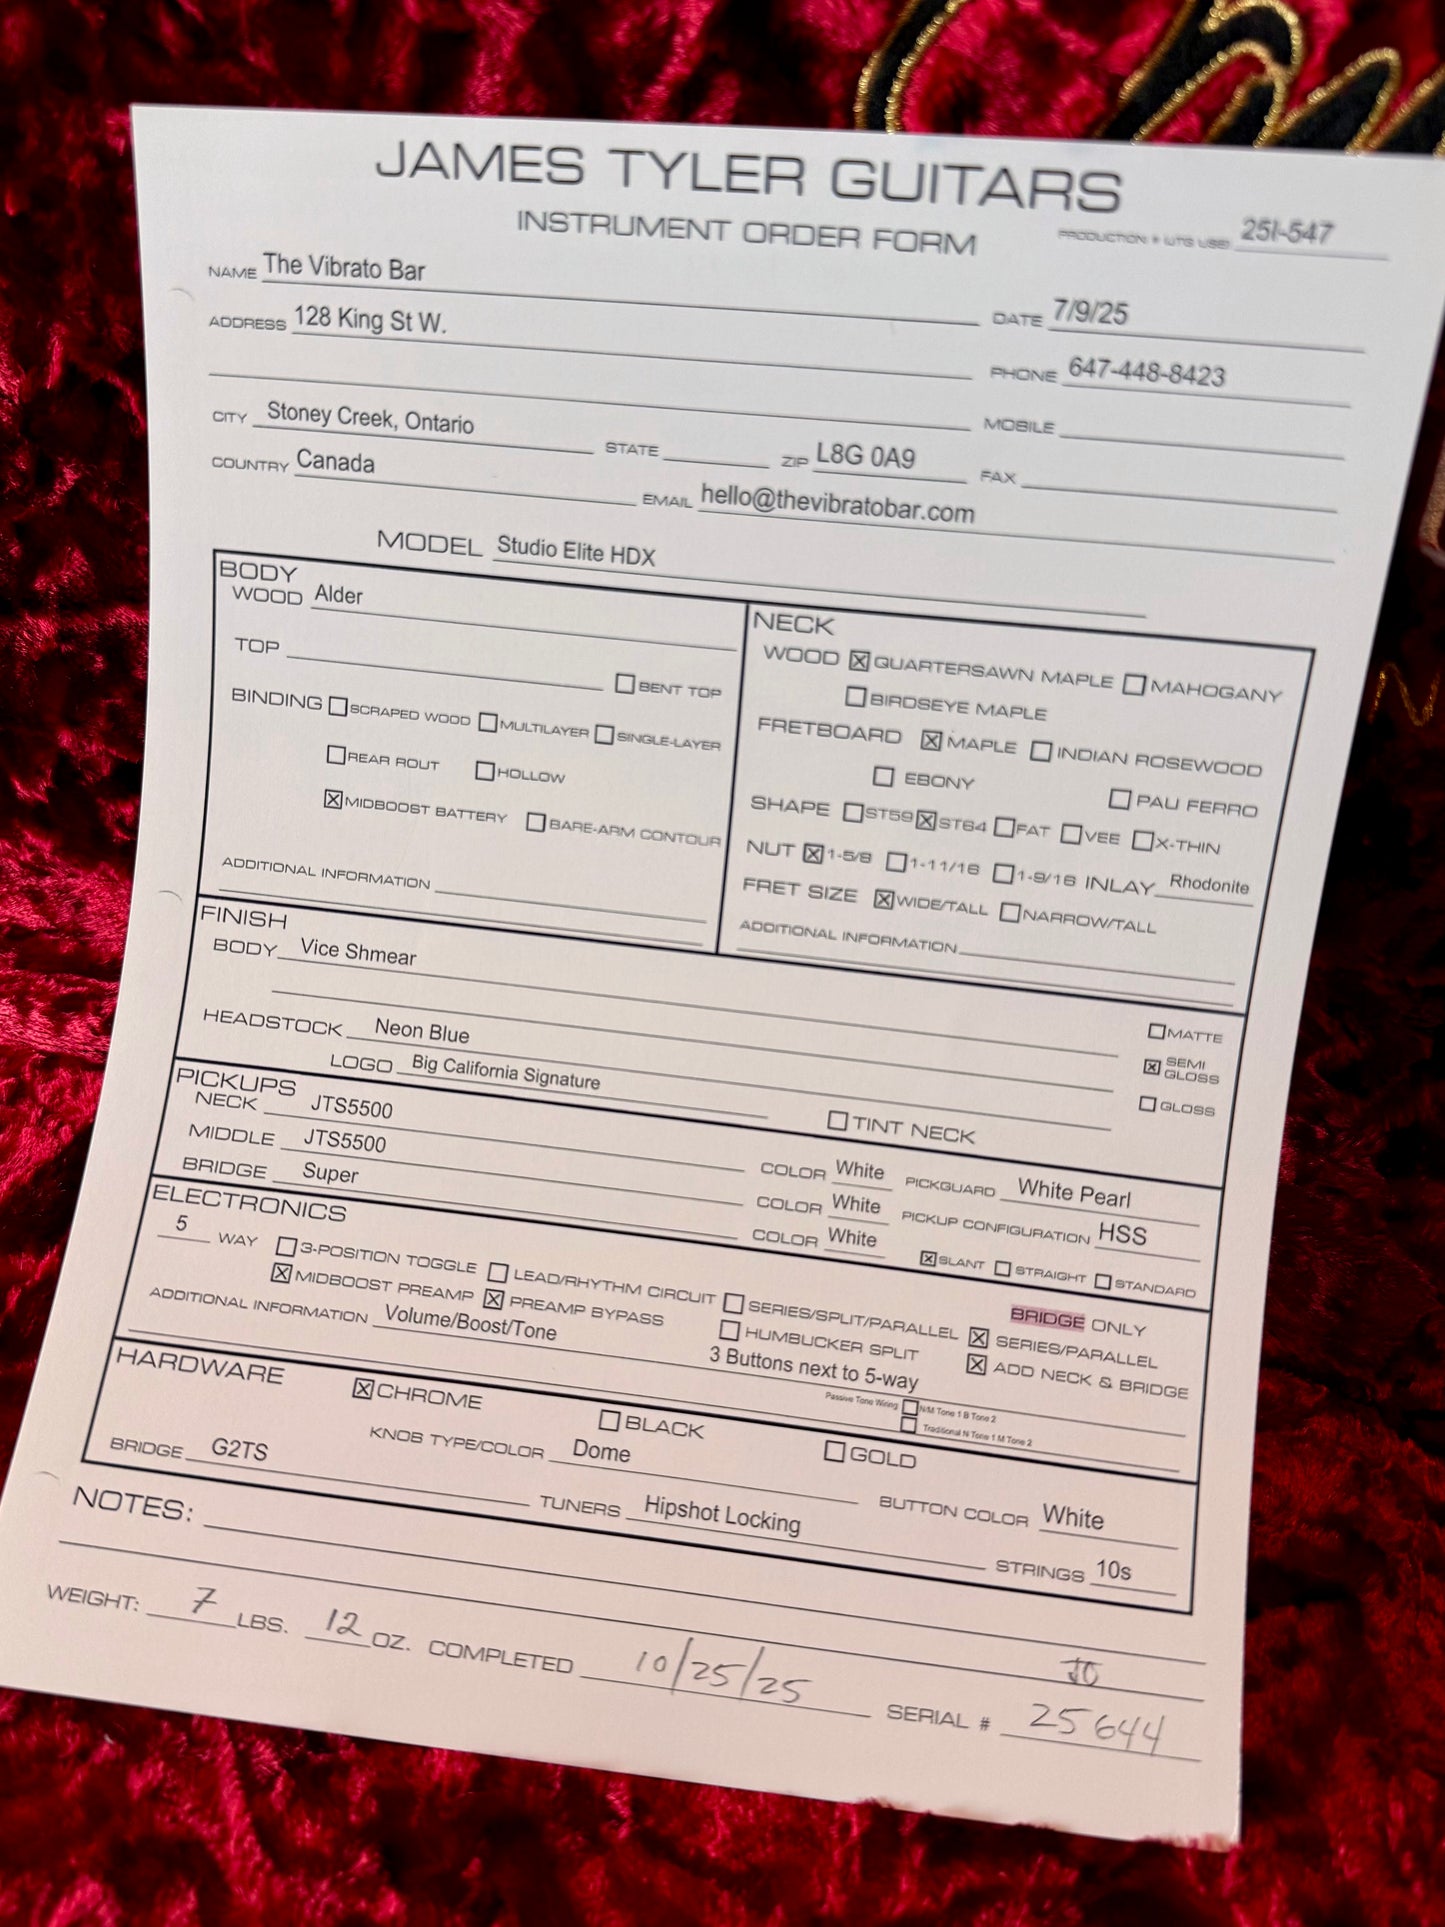 JAMES TYLER GUITARS
INSTRUMENT ORDER FORM
PRODUCTION # (JTG USE) 25I-547
NAME The Vibrato Bar
DATE 7/9/25
ADDRESS 128 King St W.
PHONE 647-448-8423
MOBILE
CITY Stoney Creek, Ontario STATE ZIP L8G 0A9 FAX
COUNTRY Canada EMAIL hello@thevibratobar.com
MODEL Studio Elite HDX
BODY
WOOD Alder
TOP
☐ BENT TOP
BINDING ☐ SCRAPED WOOD ☐ MULTILAYER ☐ SINGLE-LAYER
☐ REAR ROUT ☐ HOLLOW
☒ MIDBOOST BATTERY ☐ BARE-ARM CONTOUR
ADDITIONAL INFORMATION
NECK
WOOD ☒ QUARTERSAWN MAPLE ☐ MAHOGANY
☐ BIRDSEYE MAPLE
FRETBOARD ☒ MAPLE ☐ INDIAN ROSEWOOD
☐ EBONY ☐ PAU FERRO
SHAPE ☐ ST59 ☒ ST64 ☐ FAT ☐ VEE ☐ X-THIN
NUT ☒ 1-5/8 ☐ 1-11/16 ☐ 1-9/16 INLAY Rhodonite
FRET SIZE ☒ WIDE/TALL ☐ NARROW/TALL
ADDITIONAL INFORMATION
FINISH
BODY Vice Shmear
☐ MATTE
HEADSTOCK Neon Blue
☒ SEMI GLOSS
LOGO Big California Signature
☐ GLOSS
☐ TINT NECK
PICKUPS
NECK JTS5500 COLOR White PICKGUARD White Pearl
MIDDLE JTS5500 COLOR White PICKUP CONFIGURATION HSS
BRIDGE Super COLOR White ☒ SLANT ☐ STRAIGHT ☐ STANDARD
ELECTRONICS
5 WAY ☐ 3-POSITION TOGGLE ☐ LEAD/RHYTHM CIRCUIT ☐ SERIES/SPLIT/PARALLEL
BRIDGE ONLY
☒ SERIES/PARALLEL
☒ MIDBOOST PREAMP ☒ PREAMP BYPASS ☐ HUMBUCKER SPLIT ☒ ADD NECK & BRIDGE
ADDITIONAL INFORMATION Volume/Boost/Tone 3 Buttons next to 5-way
Passive Tone Wiring ☐ N/M Tone 1 B Tone 2
☐ Traditional N Tone 1 M Tone 2
HARDWARE
☒ CHROME ☐ BLACK ☐ GOLD
BRIDGE G2TS KNOB TYPE/COLOR Dome BUTTON COLOR White
TUNERS Hipshot Locking STRINGS 10s
NOTES:
WEIGHT: 7 LBS. 12 OZ. COMPLETED 10/25/25 SERIAL # 25644